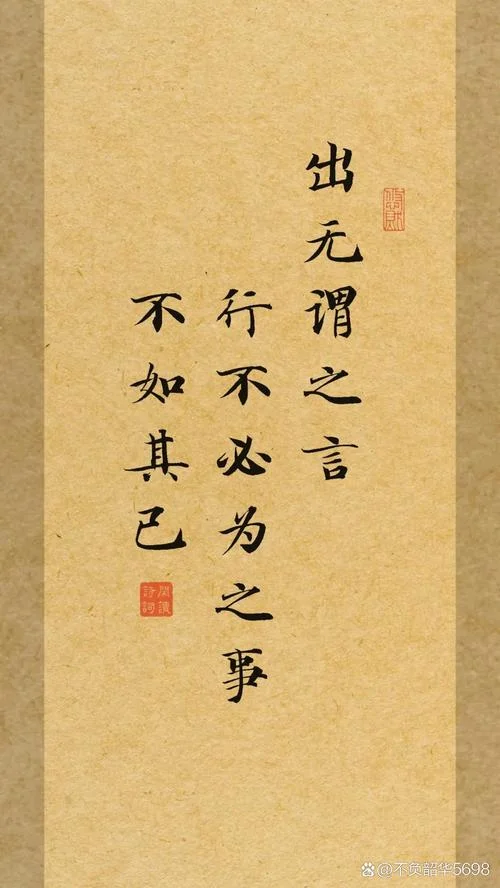 出无谓之言
行不必为之事
不如其已
闲读诗词
不负韶华5698